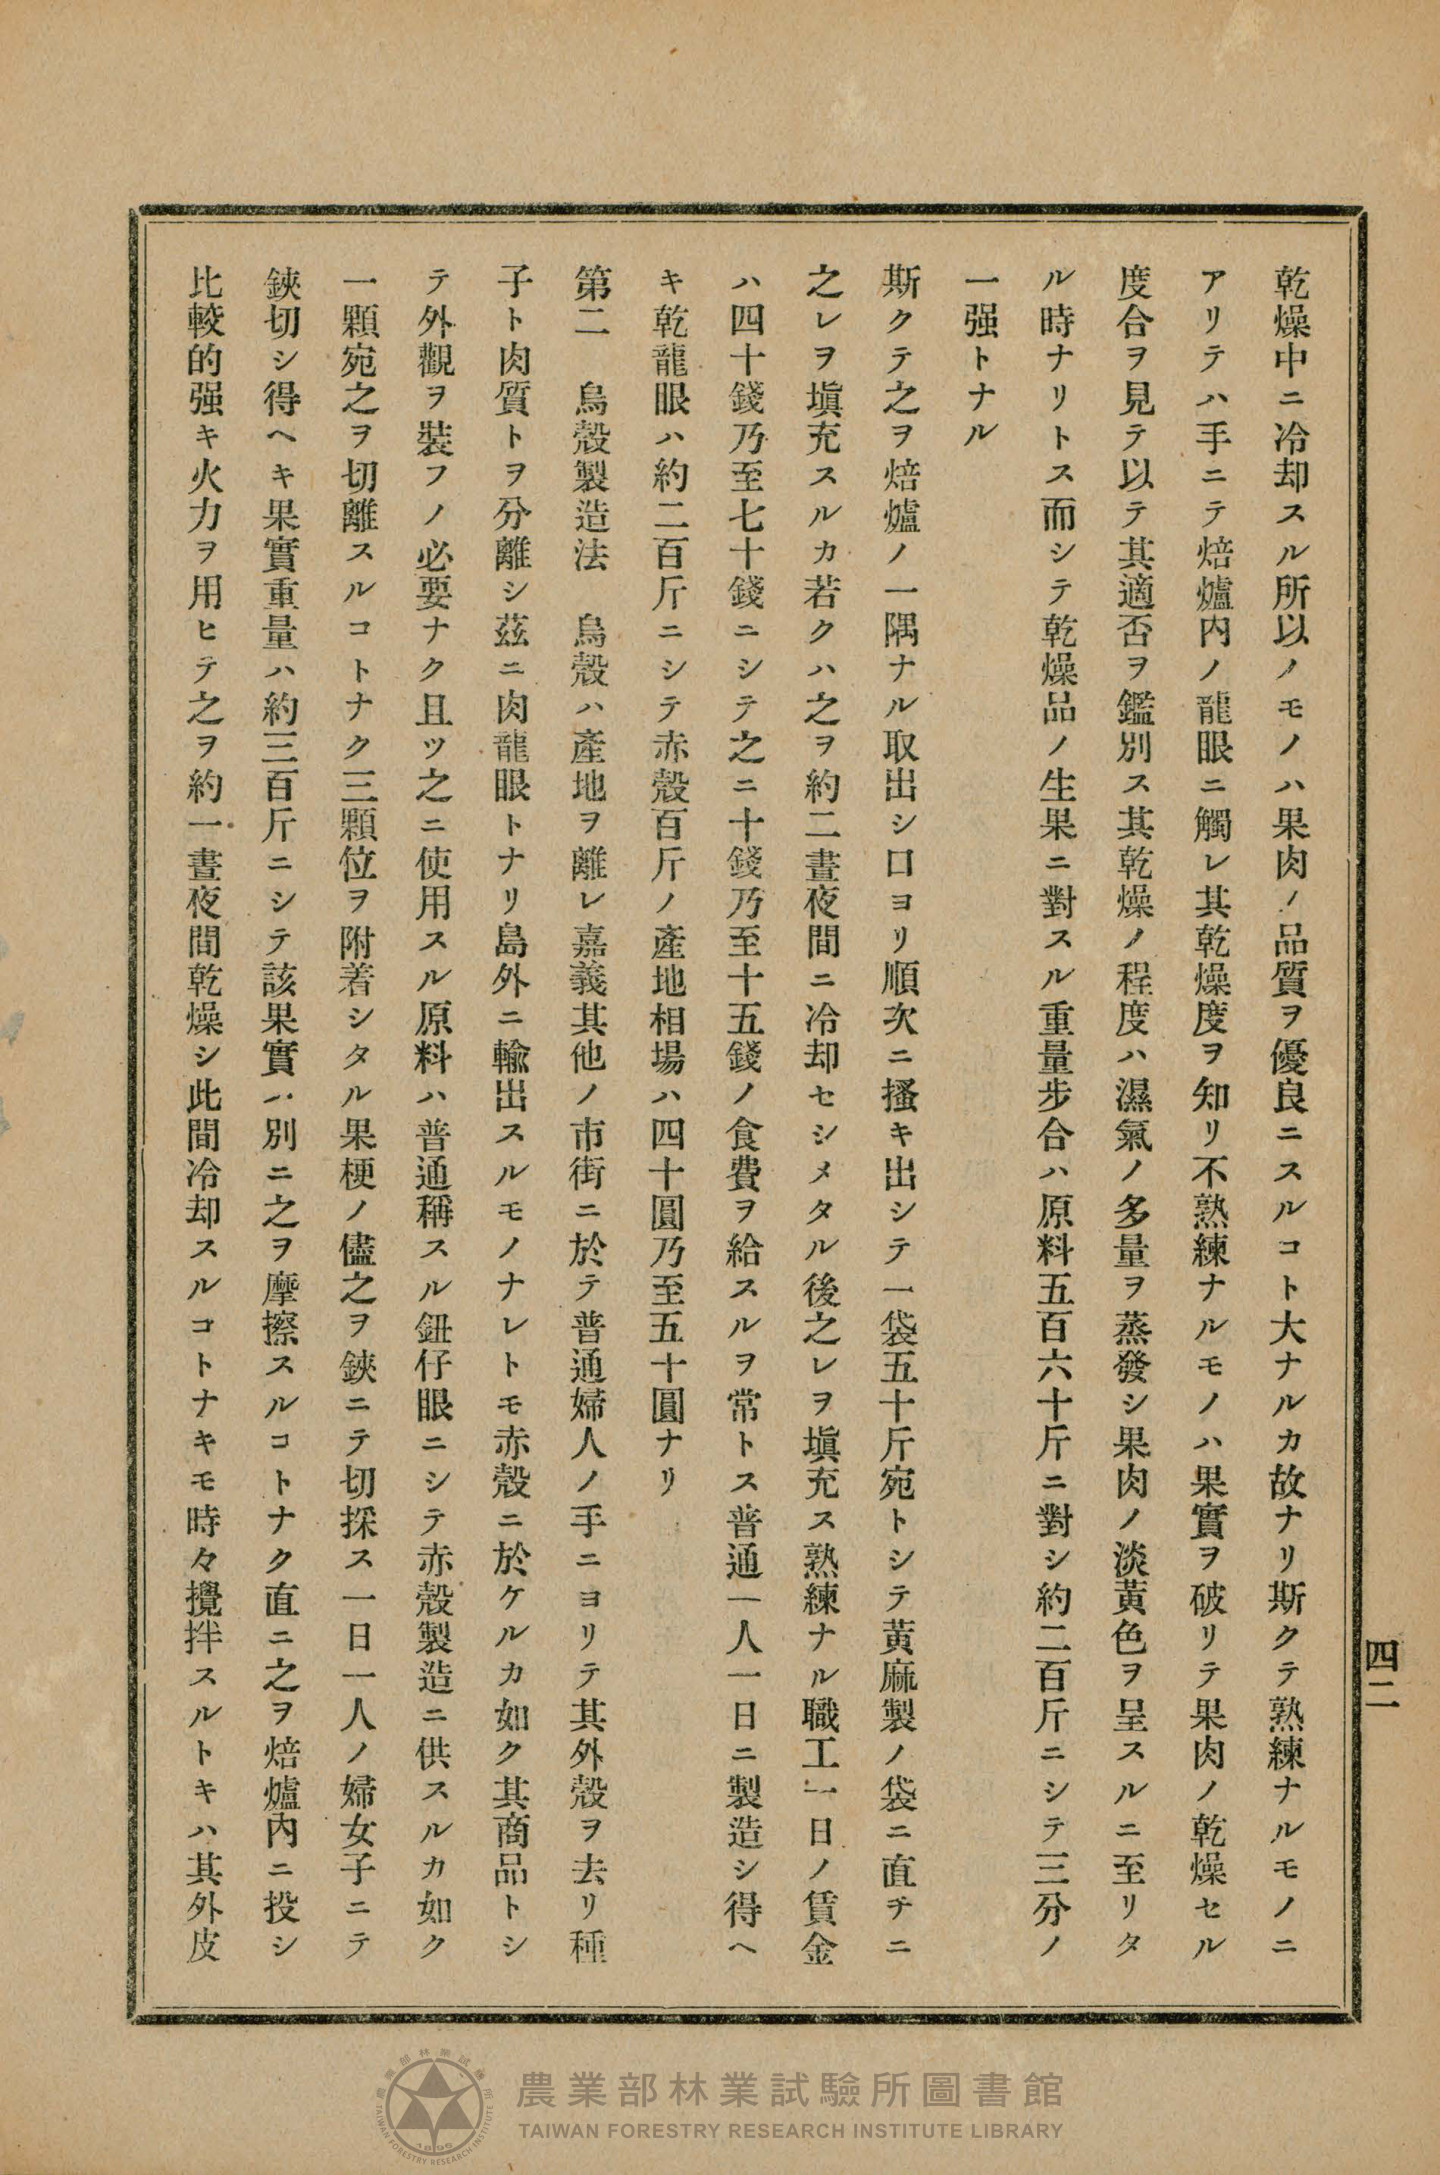 乾燥中ニ冷却スル所以ノモノハ果肉ノ品質ヲ優良ニスルコト大ナルカ故ナリ斯クテ熟練ナルモノニ
アリテハ手ニテ焙爐內ノ龍眼ニ觸レ其乾燥度ヲ知リ不熟練ナルモノハ果實ヲ破リテ果肉ノ乾燥セル
度合ヲ見テ以テ其適否ヲ鑑別ス其乾燥ノ程度ハ濕氣ノ多量ヲ蒸發シ果肉ノ淡黃色ヲ呈スルニ至リタ
ル時ナリトス而シテ乾燥品ノ生果ニ對スル重量步合ハ原料五百六十斤ニ對シ約二百斤ニシテ三分ノ
一强トナル
斯クテ之ヲ焙爐ノ一隅ナル取出シ口ヨリ順次ニ搔キ出シテ一袋五十斤宛トシテ黃麻製ノ袋ニ直チニ
之レヲ塡充スルカ若クハ之ヲ約二晝夜間ニ冷却セシメタル後之レヲ塡充ス熟練ナル職工一日ノ賃金
ハ四十錢乃至七十錢ニシテ之ニ十錢乃至十五錢ノ食費ヲ給スルヲ常トス普通一人一日ニ製造シ得ヘ
キ乾龍眼ハ約二百斤ニシテ赤殼百斤ノ產地相場ハ四十圓乃至五十圓ナリ
第二　烏殼製造法　烏殼ハ產地ヲ離レ嘉義其他ノ市街ニ於テ普通婦人ノ手ニヨリテ其外殼ヲ去リ種
子ト肉質トヲ分離シ茲ニ肉龍眼トナリ島外ニ輸出スルモノナレトモ赤殼ニ於ケルカ如ク其商品トシ
テ外觀ヲ裝フノ必要ナク且ツ之ニ使用スル原料ハ普通稱スル鈕仔眼ニシテ赤殼製造ニ供スルカ如ク
一顆宛之ヲ切離スルコトナク三顆位ヲ附着シタル果梗ノ儘之ヲ鋏ニテ切採ス一日一人ノ婦女子ニテ
鋏切シ得ヘキ果實重量ハ約三百斤ニシテ該果實ハ別ニ之ヲ摩擦スルコトナク直ニ之ヲ焙爐內ニ投シ
比較的强キ火力ヲ用ヒテ之ヲ約一晝夜間乾燥シ此間冷却スルコトナキモ時々攪拌スルトキハ其外皮
四二
農業部林業試驗所圖書館
TAIWAN FORESTRY RESEARCH INSTITUTE LIBRARY
農業部林業試驗所
TAIWAN FORESTRY RESEARCH INSTITUTE
1896